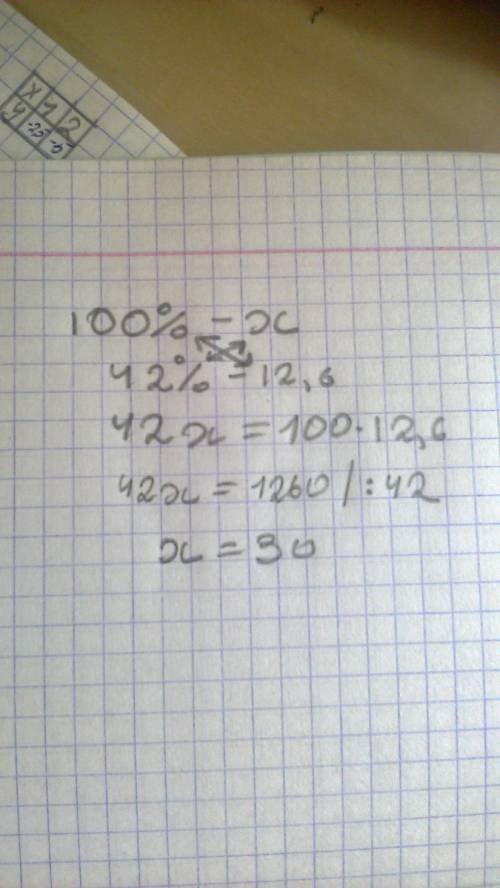 x 1 2
y -25
100% - x
42% - 12,6
42x = 100·12,6
42x = 1260 /:42
x = 30